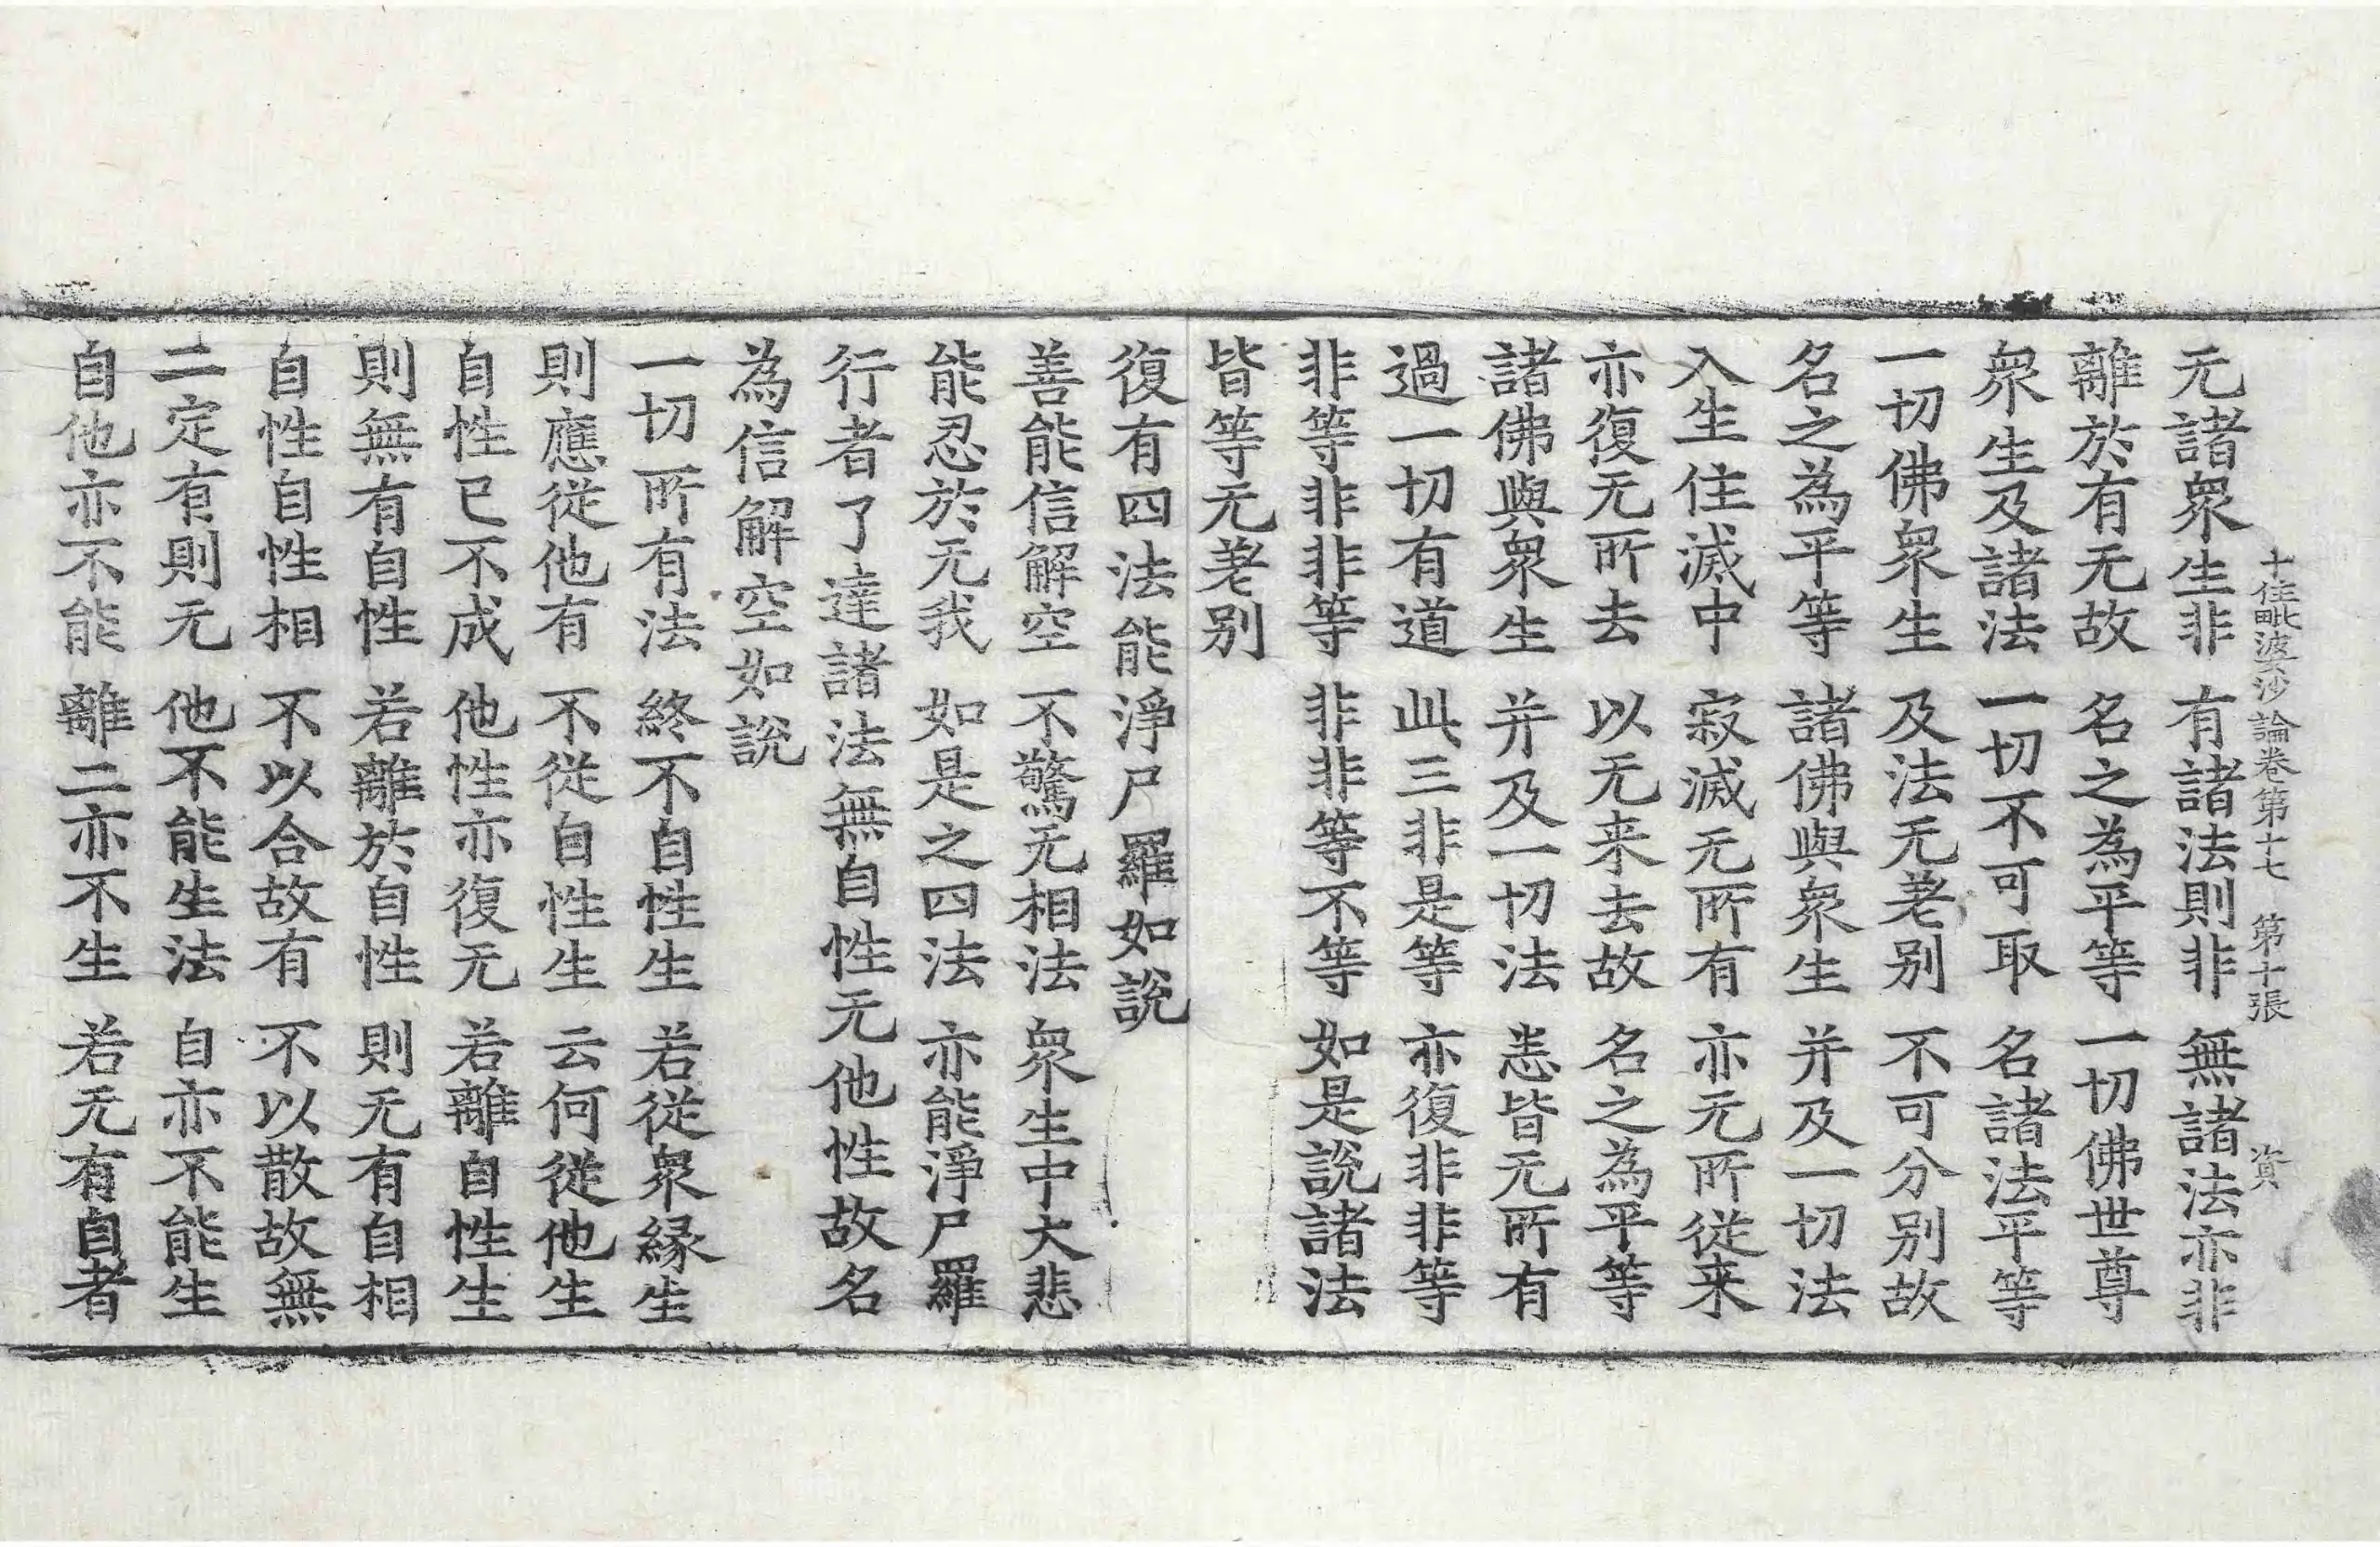 十住毗婆沙論卷第十七 第十張 資
无諸衆生非 有諸法則非 無諸法亦非
離於有无故 名之為平等 一切佛世尊
衆生及諸法 一切不可取 名諸法平等
一切佛衆生 及法无差别 不可分别故
名之為平等 諸佛與衆生 并及一切法
入生住滅中 寂滅无所有 亦无所從来
亦復无所去 以无来去故 名之為平等
諸佛與衆生 并及一切法 悉皆无所有
過一切有道 此三非是等 亦復非非等
非等非非等 非非等不等 如是說諸法
皆等无差别
復有四法能淨尸羅如說
善能信解空 不驚无相法 衆生中大悲
能忍於无我 如是之四法 亦能淨尸羅
行者了達諸法無自性无他性故名
為信解空如說
一切所有法 終不自性生 若從衆緣生
則應從他有 不從自性生 云何從他生
自性已不成 他性亦復无 若離自性生
則無有自性 若離於自性 則无有自相
自性自性相 不以合故有 不以散故無
二定有則无 他不能生法 自亦不能生
自他亦不能 離二亦不生 若无有自者